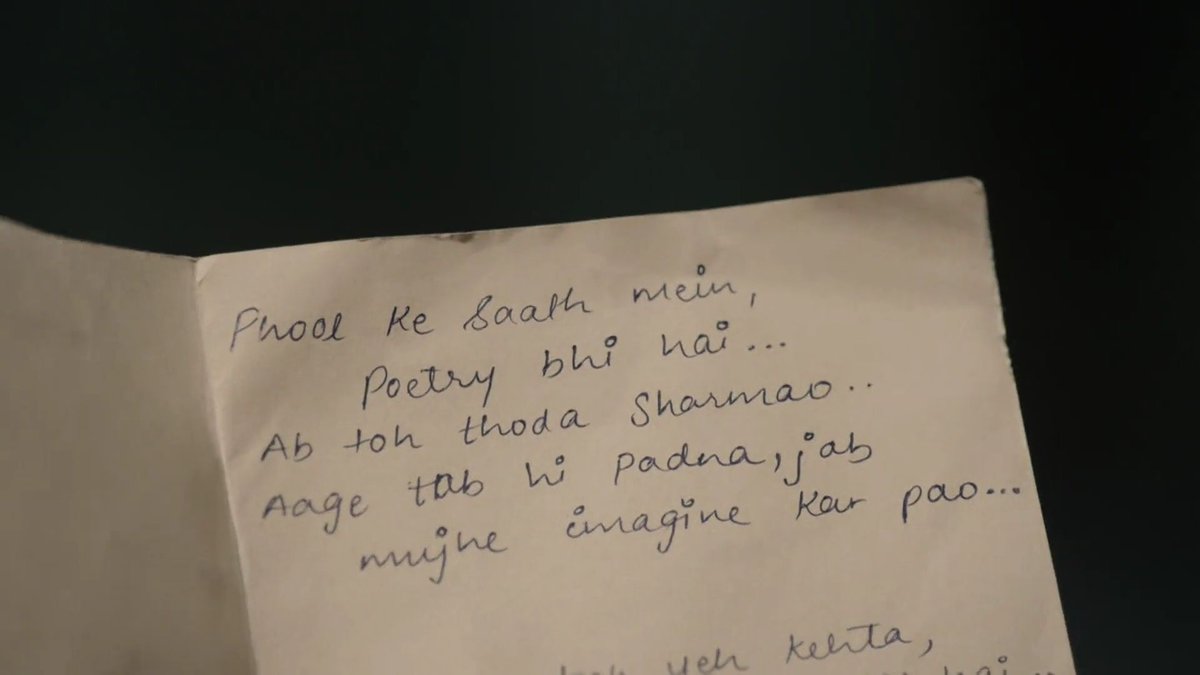 Phool Ke Saath mein,
Poetry bhi hai...
Ab toh thoda Sharmao..
Aage tab hi padna, jab
mujhe imagine kar pao...
yeh kehta,
hai..